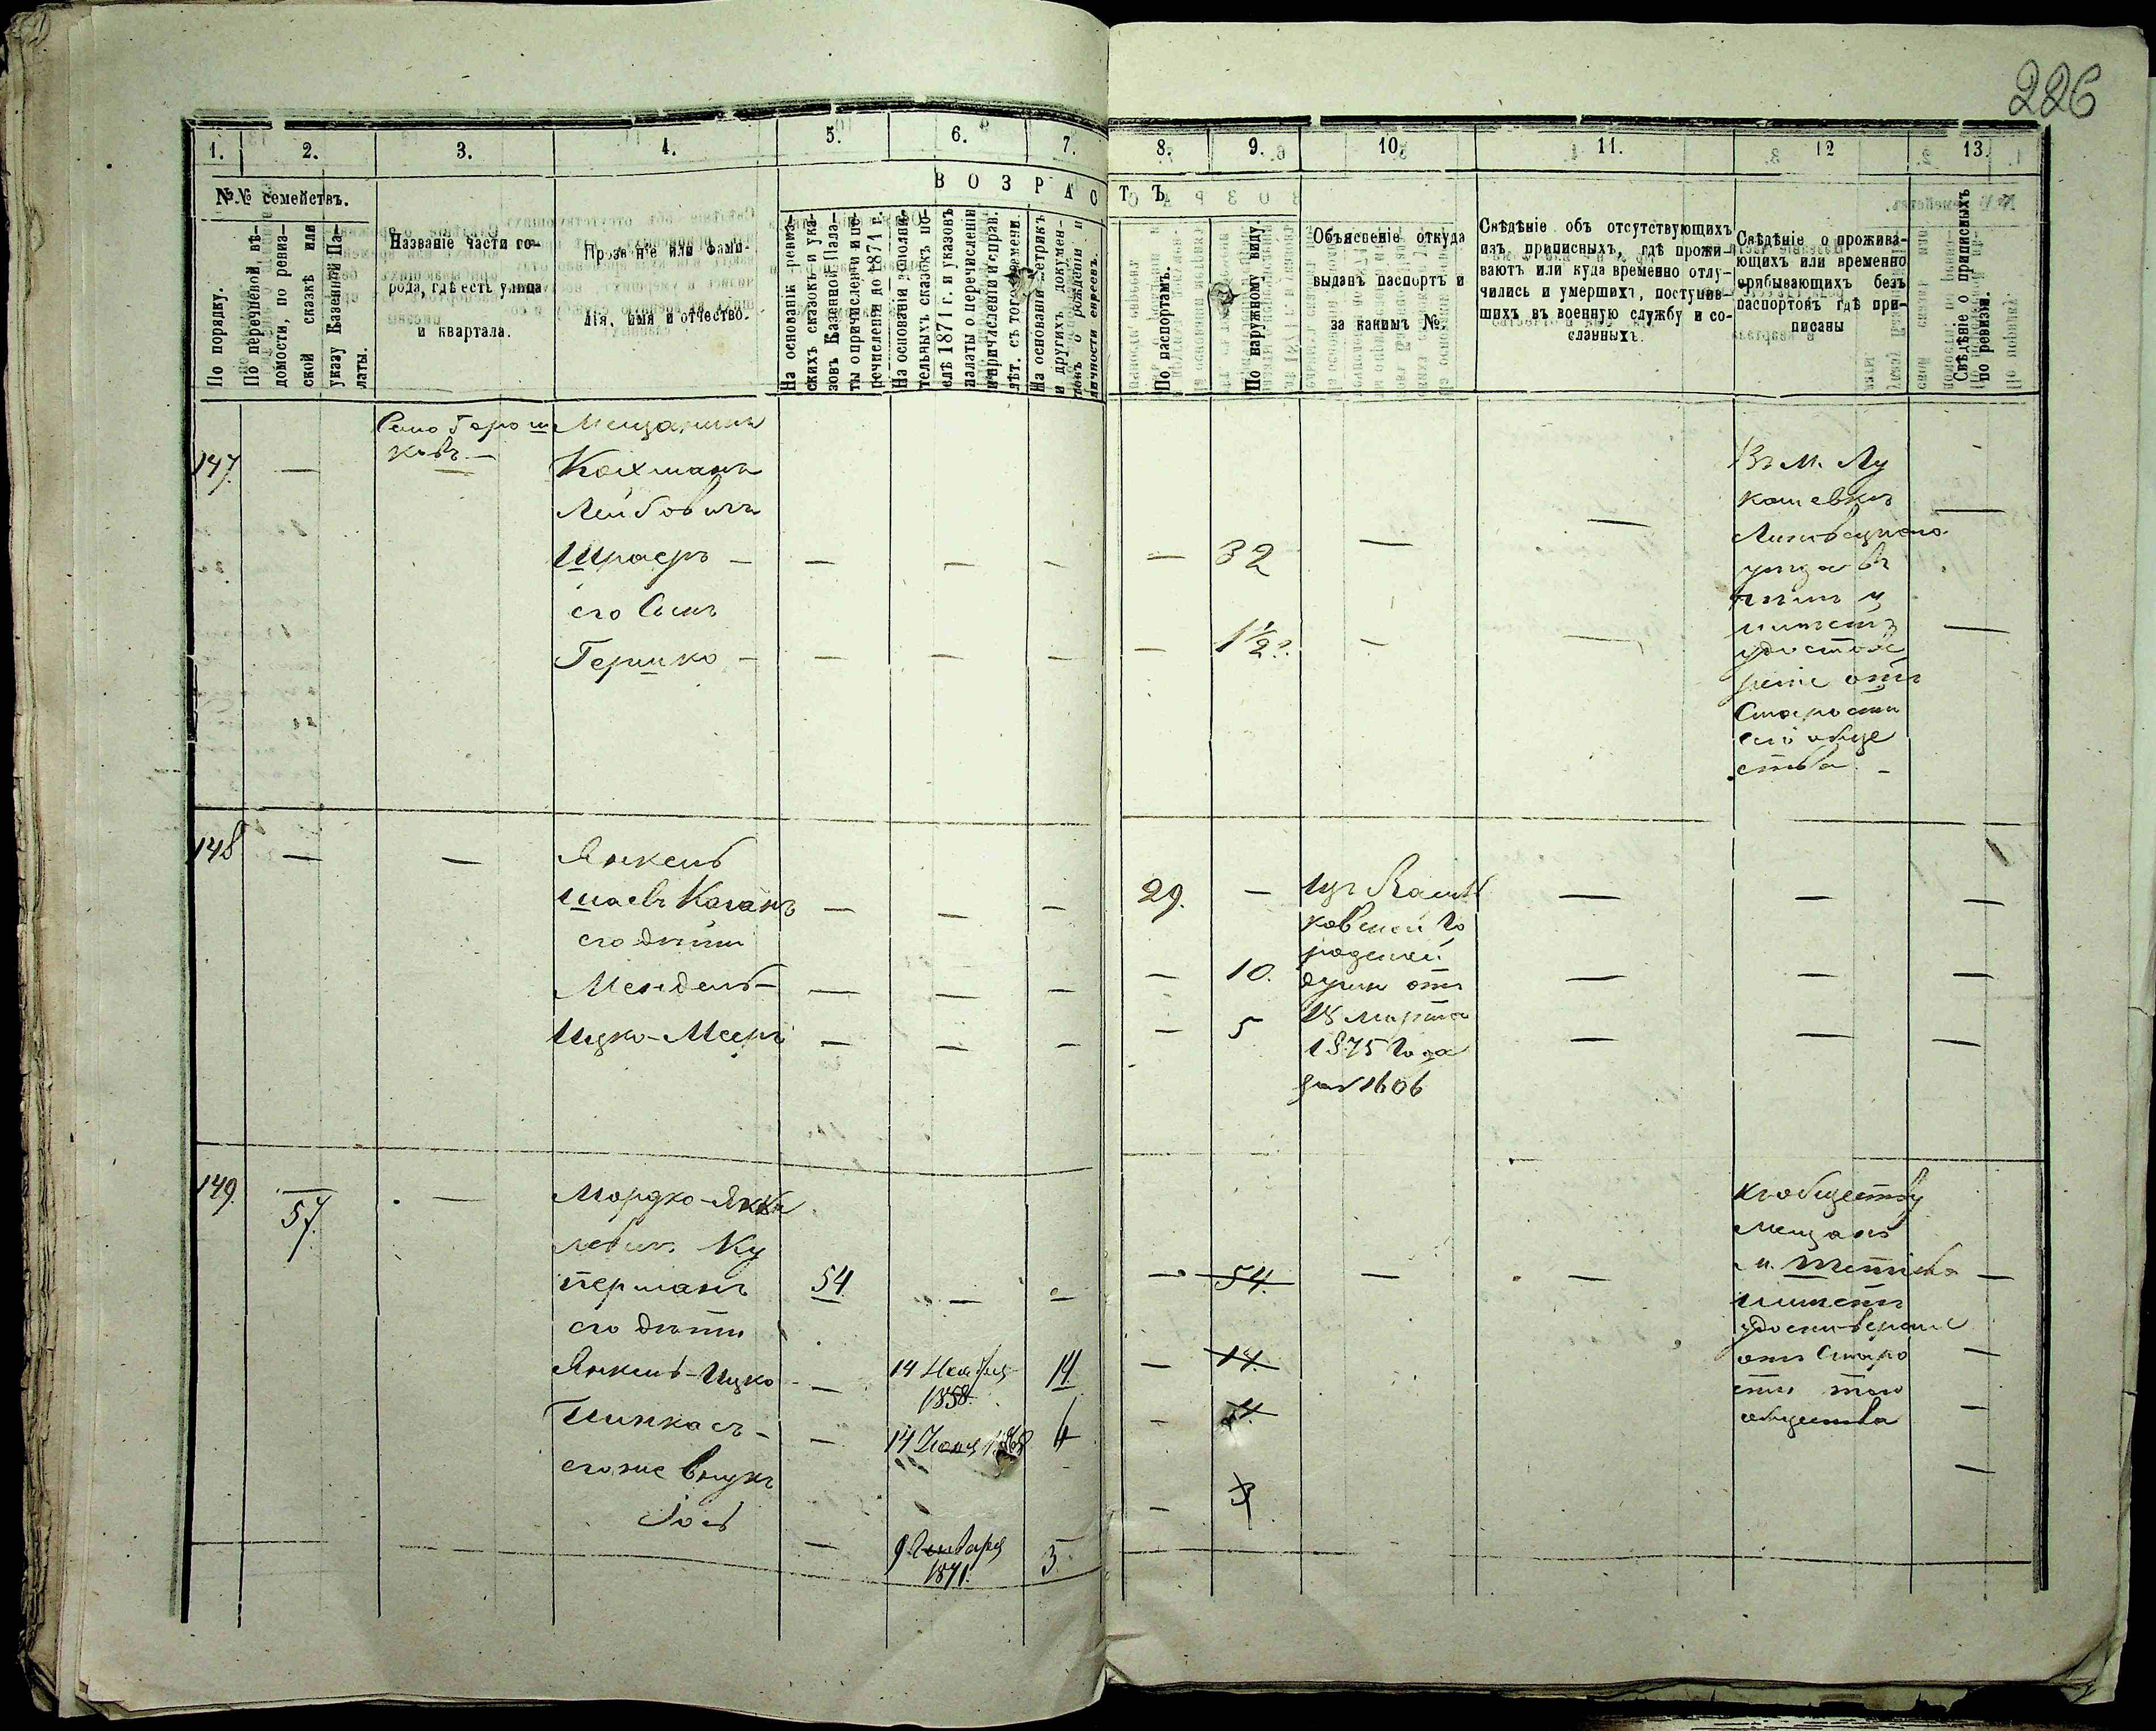 226
1. 2. 3. 4. 5. 6. 7. 8. 9. 10. 11. 12 13.
№№ семействъ.
По порядку.
По перечневой вѣ-
домости, по ревиз-
ской сказкѣ или
указу Казенной Па-
латы.
Названіе части го-
рода, гдѣ есть улица
и квартала.
Прозваніе или фами-
лія, имя и отчество.
ВОЗРАСТЪ
На основаніи ревиз-
скихъ сказокъ и ука-
зовъ Казенной Пала-
ты о причисленіи и пе-
речисленіи до 1871 г.
На основаніи дополни-
тельныхъ сказокъ по-
слѣ 1871 г. и указовъ
палаты о перечисленіи
и причисленіи и справ.
лѣт. съ того времени.
На основаніи метрикъ
и другихъ докумен-
товъ о рожденіи и
личности евреевъ.
По паспортамъ.
По наружному виду.
Объясненіе откуда
выданъ паспортъ и
за какимъ №.
Свѣдѣніе объ отсутствующихъ
изъ приписныхъ, гдѣ прожи-
ваютъ или куда временно отлу-
чились и умершихъ, поступив-
шихъ въ военную службу и со-
сланныхъ.
Свѣдѣніе о прожива-
ющихъ или временно
прибывающихъ безъ
паспортовъ гдѣ при-
писаны
Свѣдѣніе о приписныхъ
по ревизіи.
Село Горош
ковъ —
Мещанинъ
147. —
Лейбовичъ
Шраеръ — — — — — 32 — —
его Сынъ
Гершко — — — — — 1½ — — —
Въ М. Лу
кашевкѣ
Липовецкого
уѣзда
удостовѣ
реніе отъ
Старосты
обще
ства. —
148 — — Янкель
Шаевъ Каганъ — — — 29. — — — —
его дѣти
Мендель — — — — — 10. — — —
Ицко-Мееръ — — — — 5 — — —
Изъ Василь
ковской Го
родской
думы отъ
18 Марта
1875 Года
за № 1606
149. — 57. — Мордко-Янке
левичъ Ку
перманъ 54 — — — 54. — — —
его дѣти
Янкель-Ицко — 14 Ноября 1858. 14 — 14. —
Пинкасъ — — 14 Іюня 1868 6 — —
его же внукъ
Іось — 9 Января 1871. 5. — —
Къ обществу
Мещанъ
м. Тетіева
имѣетъ
удостовѣреніе
отъ Старо
сты того
общества